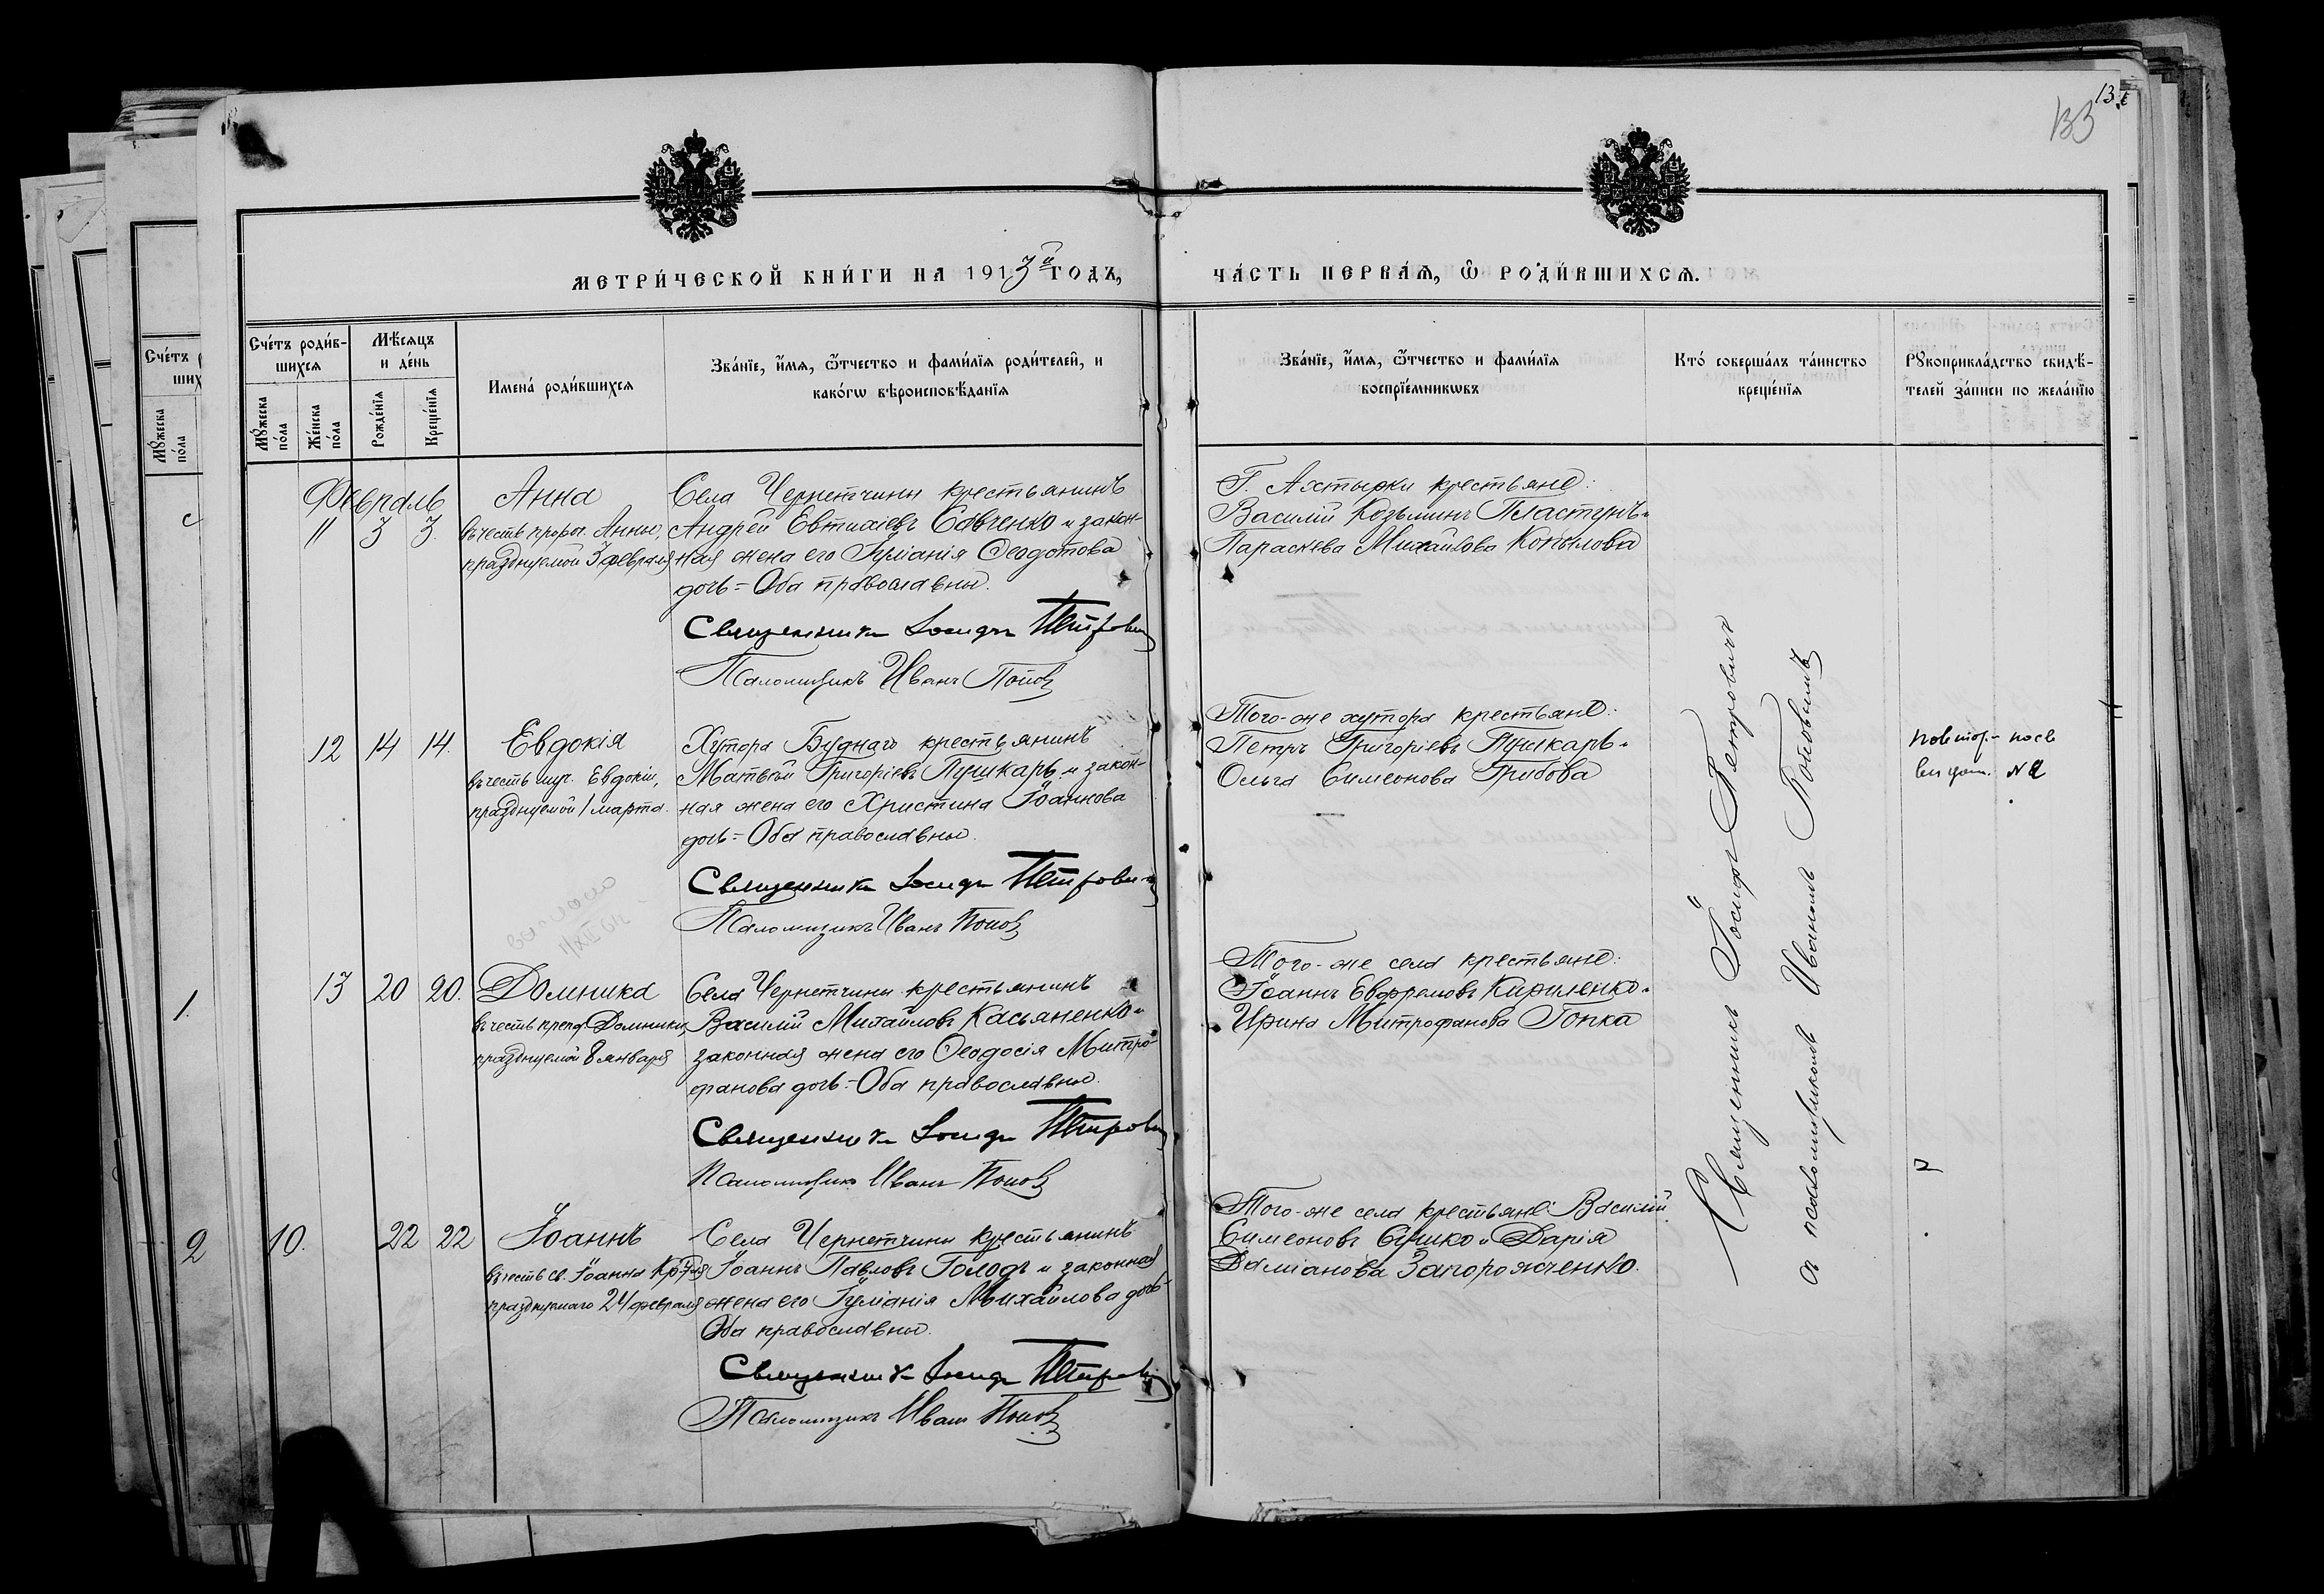 133
МЕТРИ́ЧЕСКОЙ КНИ́ГИ НА 1913й ГОДЪ, ЧА́СТЬ ПЕРВА́Ѧ, Ѽ РОДИ́ВШИХСѦ.
Сче́тъ роди́в-
шихсѧ
Мꙋ́жеска
по́ла
Же́нска
по́ла
Мѣ́сѧцъ
и де́нь
Рожде́нїѧ
Креще́нїѧ
Имена́ роди́вшихсѧ
Зва́нїе, и́мѧ, ѻ҆́тчество и фами́лїѧ роди́телей, и
како́гѡ вѣроисповѣ́данїѧ
Зва́нїе, и́мѧ, ѻ҆́тчество и фами́лїѧ
воспрїе́мникѡвъ
Кто́ соверша́лъ та́инство
креще́нїѧ
Рꙋкоприкла́дство свидѣ́-
телей за́писи по жела́нїю
Февраль
11 3 3.
Анна
въ честь прор. Анны,
празднуемой 3 февраля
Села Чернетчины крестьянинъ
Андрей Евтихіевъ Савченко и закон-
ная жена его Іуліанія Ѳеодотова
дочь = Оба православны.
Священникъ Іосифъ Петровичъ
Псаломщикъ Иванъ Поповъ
Г. Ахтырки крестьяне:
Василій Козьминъ Пластунъ и
Параскева Михайлова Копылова
12 14 14.
Евдокія
въ честь муч. Евдокіи,
празднуемой 1 марта.
Хутора Буднаго крестьянинъ
Матвѣй Григоріевъ Пушкарь и закон-
ная жена его Христина Іоаннова
дочь = Оба православны.
Священникъ Іосифъ Петровичъ
Псаломщикъ Иванъ Поповъ
Того-же хутора крестьяне:
Петръ Григоріевъ Пушкарь и
Ольга Симеонова Грибова
повтор.
№ 2
13 20 20.
Домника
въ честь преп. Домники,
празднуемой 8 января
Села Чернетчины крестьянинъ
Василій Михайловъ Касьяненко и
законная жена его Ѳеодосія Митро-
фанова дочь = Оба православны.
Священникъ Іосифъ Петровичъ
Псаломщикъ Иванъ Поповъ
Того-же села крестьяне:
Іоаннъ Евфремовъ Кириленко и
Ирина Митрофанова Гопка
10. 22 22
Іоаннъ
въ честь св. Іоанна Кр-ля
празднуемаго 24 февраля
Села Чернетчины крестьянинъ
Іоаннъ Павловъ Голодъ и законная
жена его Іуліанія Михайлова дочь
Оба православны.
Священникъ Іосифъ Петровичъ
Псаломщикъ Иванъ Поповъ
Того-же села крестьяне: Василій
Симеоновъ Сушко и Дарія
Даміанова Запорожченко.
Священникъ Іосифъ Петровичъ
съ псаломщикомъ Иваномъ Поповымъ
1.
2